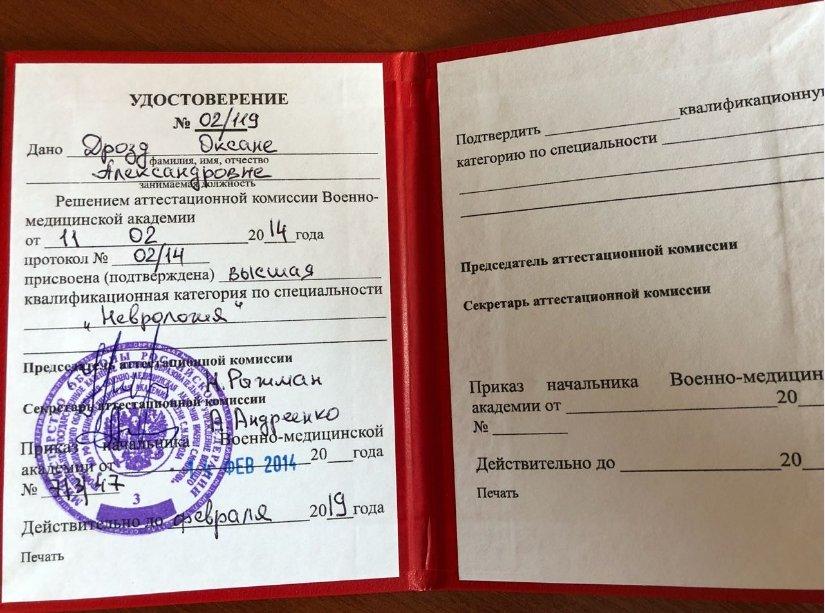 УДОСТОВЕРЕНИЕ
№ 02/119
Дано Дрозд Оксане
фамилия, имя, отчество
Александровне
занимаемая должность
Решением аттестационной комиссии Военно-
медицинской академии
от 11 02 2014 года
протокол № 02/14
присвоена (подтверждена) высшая
квалификационная категория по специальности
„Неврология"
Председатель аттестационной комиссии
Секретарь аттестационной комиссии
А. Андреенко
Приказ начальника Военно-медицинской
академии от ФЕВ 2014 20 года
№
Действительно до февраля 2019 года
Печать
3
Подтвердить квалификационную
категорию по специальности
Председатель аттестационной комиссии
Секретарь аттестационной комиссии
Приказ начальника Военно-медицин
академии от 20
№
Действительно до 20
Печать